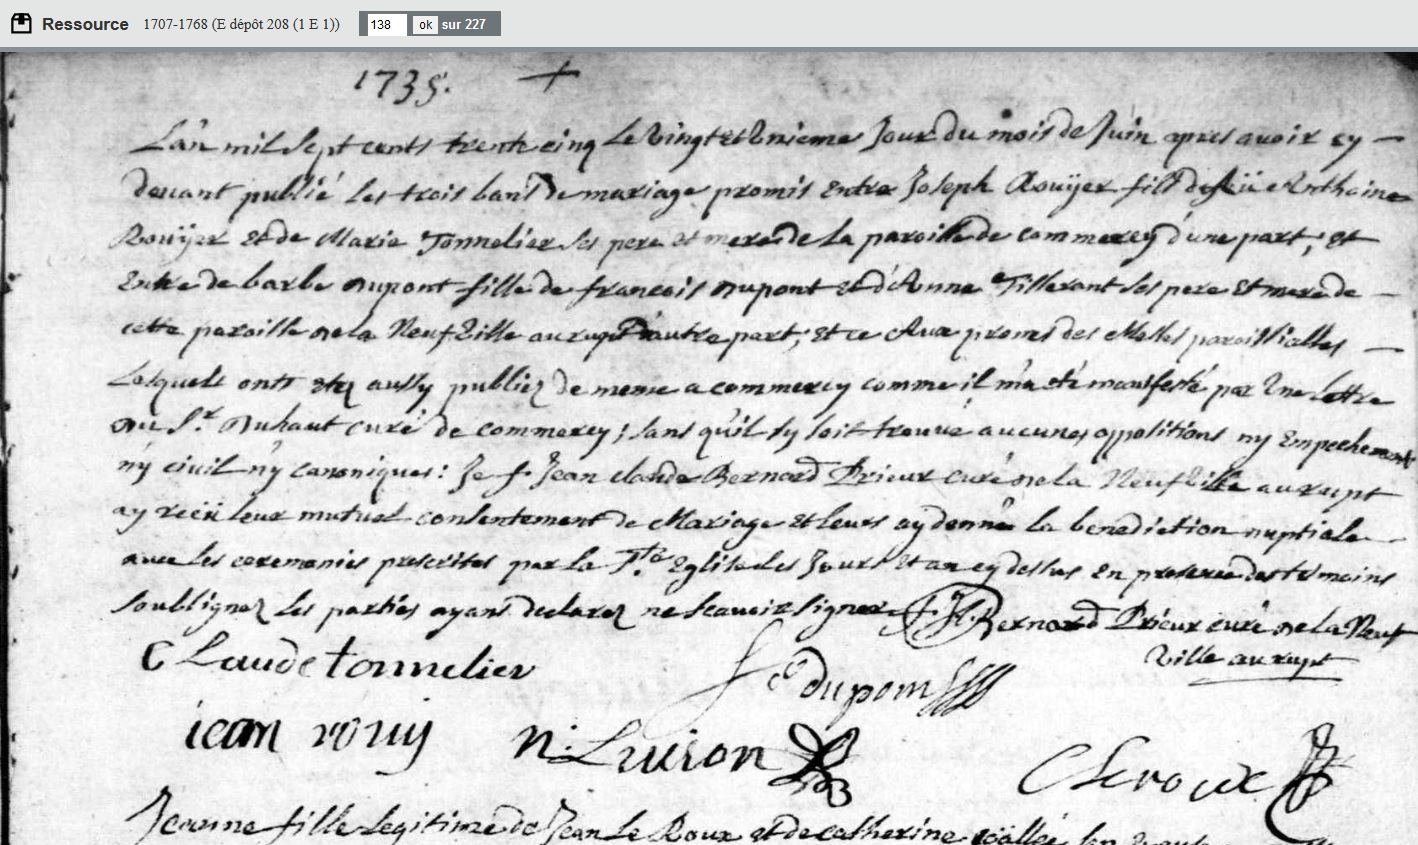 Ressource 1707-1768 (E dépôt 208 (1 E 1)) 138 ok sur 227
1735.
L'an mil sept cents trente cinq Le vingt et unieme Jour du mois de Juin apres avoir cy
devant publié les trois bans de mariage promis Entre Joseph Rouÿer fils de Anthoine
Rouÿer Et de Marie Tonnelier ses pere et mere de La paroisse de Commercy d'une part; Et
Entre de barbe Dupont fille de francois Dupont Et d'Anne Tillerant ses pere Et mere de
cette paroisse De la Neufville au rupt D'autre part; Et ce Aux prones des Messes paroissialles
Lesquels onts Etez aussy publiez de meme a commercy comme il m'a eté manifesté par Une Lettre
Du Sr. Duhaut curé de commercy; sans qu'il sy soit trouvé aucunes oppositions ny Empechement
n'y civil n'y canoniques: Je f. Jean claude Bernard Prieur curé De la Neufville au rupt
ay recû leur mutuel consentement de Mariage Et Leurs ay donné la benediction nuptiale
avec les ceremonies prescrites par La Ste. Eglise Les Jours Et an cy dessus En presence des temoins
soubsignez Les parties ayans declarez ne scavoir signer f. J. C. Bernard Prieur curé De la Neuf
Ville au rupt
C Laude tonnelier
f dupont
iean rouy
n. Luison
C Leroux
Jeanne fille Legitime de Jean Le Roux et de catherine